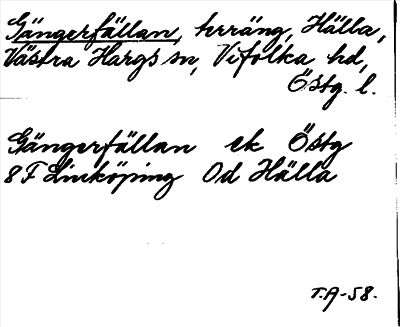 Gängerfällan, terräng, Hälla,
Västra Hargs sn, Vifolka hd,
Östg. l.
Gängerfällan ek Östg
8F Linköping Od Hälla
T.A-58.